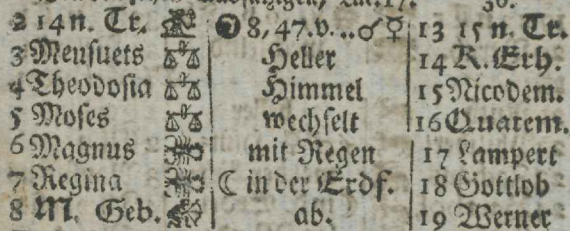 2 14 n. Tr. 8, 47. v. .. ☌ ☿ 13 15 n. Tr.
3 Mensuets ♎ Heller 14 K. Erh.
4 Theodosia ♎ Himmel 15 Nicodem.
5 Moses ♎ wechselt 16 Quatem.
6 Magnus mit Regen 17 Lampert
7 Regina ☾ in der Erdf. 18 Gottlob
8 M. Geb. ab. 19 Werner